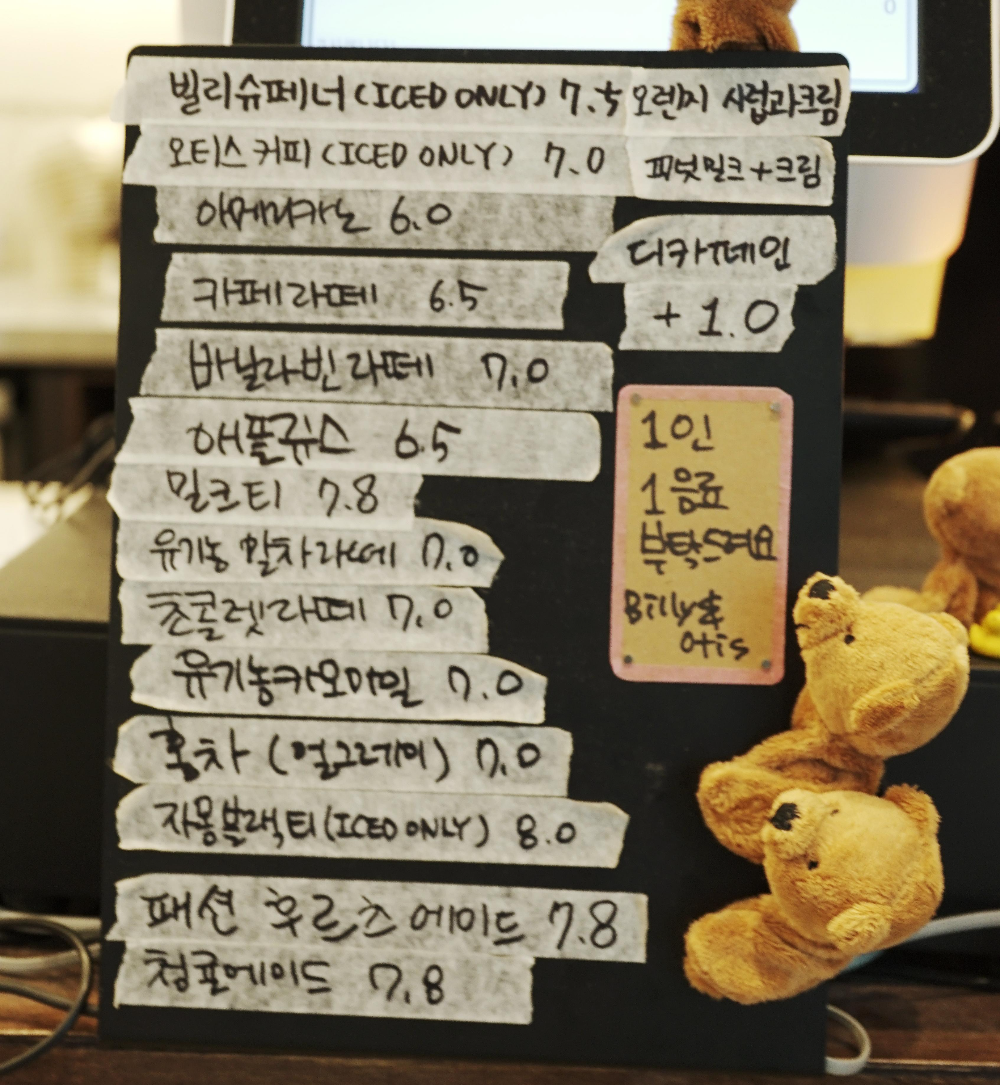 빌리슈페너 (ICED ONLY) 7.5 오렌지 시럽과크림
오티스커피 (ICED ONLY) 7.0 피넛밀크+크림
아메리카노 6.0
디카페인
+1.0
카페라떼 6.5
바닐라빈라떼 7.0
애플쥬스 6.5
밀크티 7.8
유기농말차라떼 7.0
초콜렛라떼 7.0
유기농카모마일 7.0
홍차 (얼그레이) 7.0
자몽블랙티(ICED ONLY) 8.0
패션후르츠에이드 7.8
청포에이드 7.8
1인
1음료
부탁드려요
Billy &
Otis
0